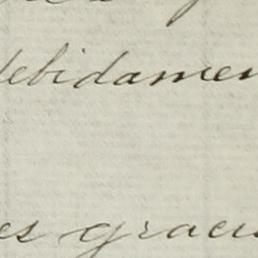 debidamen
es graci